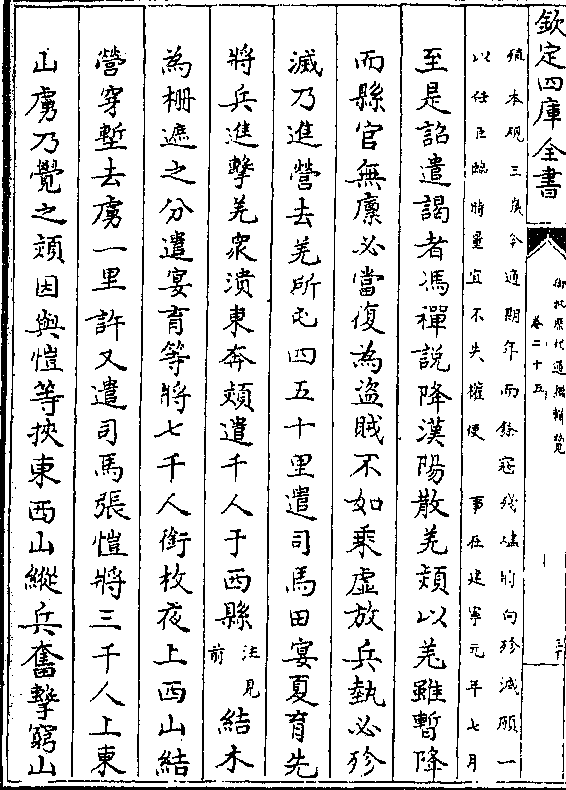 欽定四庫全書
御批歷代通鑑輯覽
卷二十五
殖本規三歲今適期年而餘寇殘燼將向殄滅願一
以任臣臨時量宜不失權便 事在建寧元年七月
至是詔遣謁者馮禪說降漢陽散羌熲以羌雖暫降
而縣官無廩必當復為盜賊不如乘虛放兵勢必殄
滅乃進營去羌所屯四五十里遣司馬田宴夏育先
將兵進擊羌衆潰東奔熲遣千人于西縣注見前結木
為柵遮之分遣宴育等將七千人銜枚夜上西山結
營穿塹去虜一里許又遣司馬張愷將三千人上東
山虜乃覺之熲因與愷等挾東西山縱兵奮擊窮山